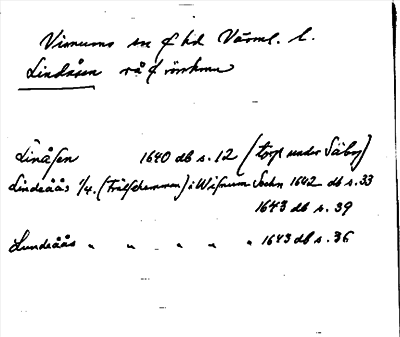 Visnums sn f hd Värml. l.
Lindåsen rå f
Linåsen 1640 db s. 12 (torp under Säby)
Lindeåås 1/4. (Frälsehemman) i Wisnum Sochn 1642 db s. 33
1643 db s. 39
Lundeåås " " " " " 1643 db s. 36